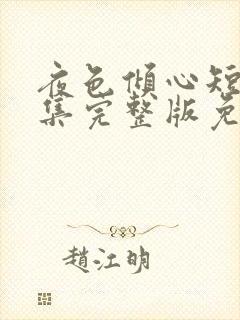 夜色倾心短
集完整版免
趙江明